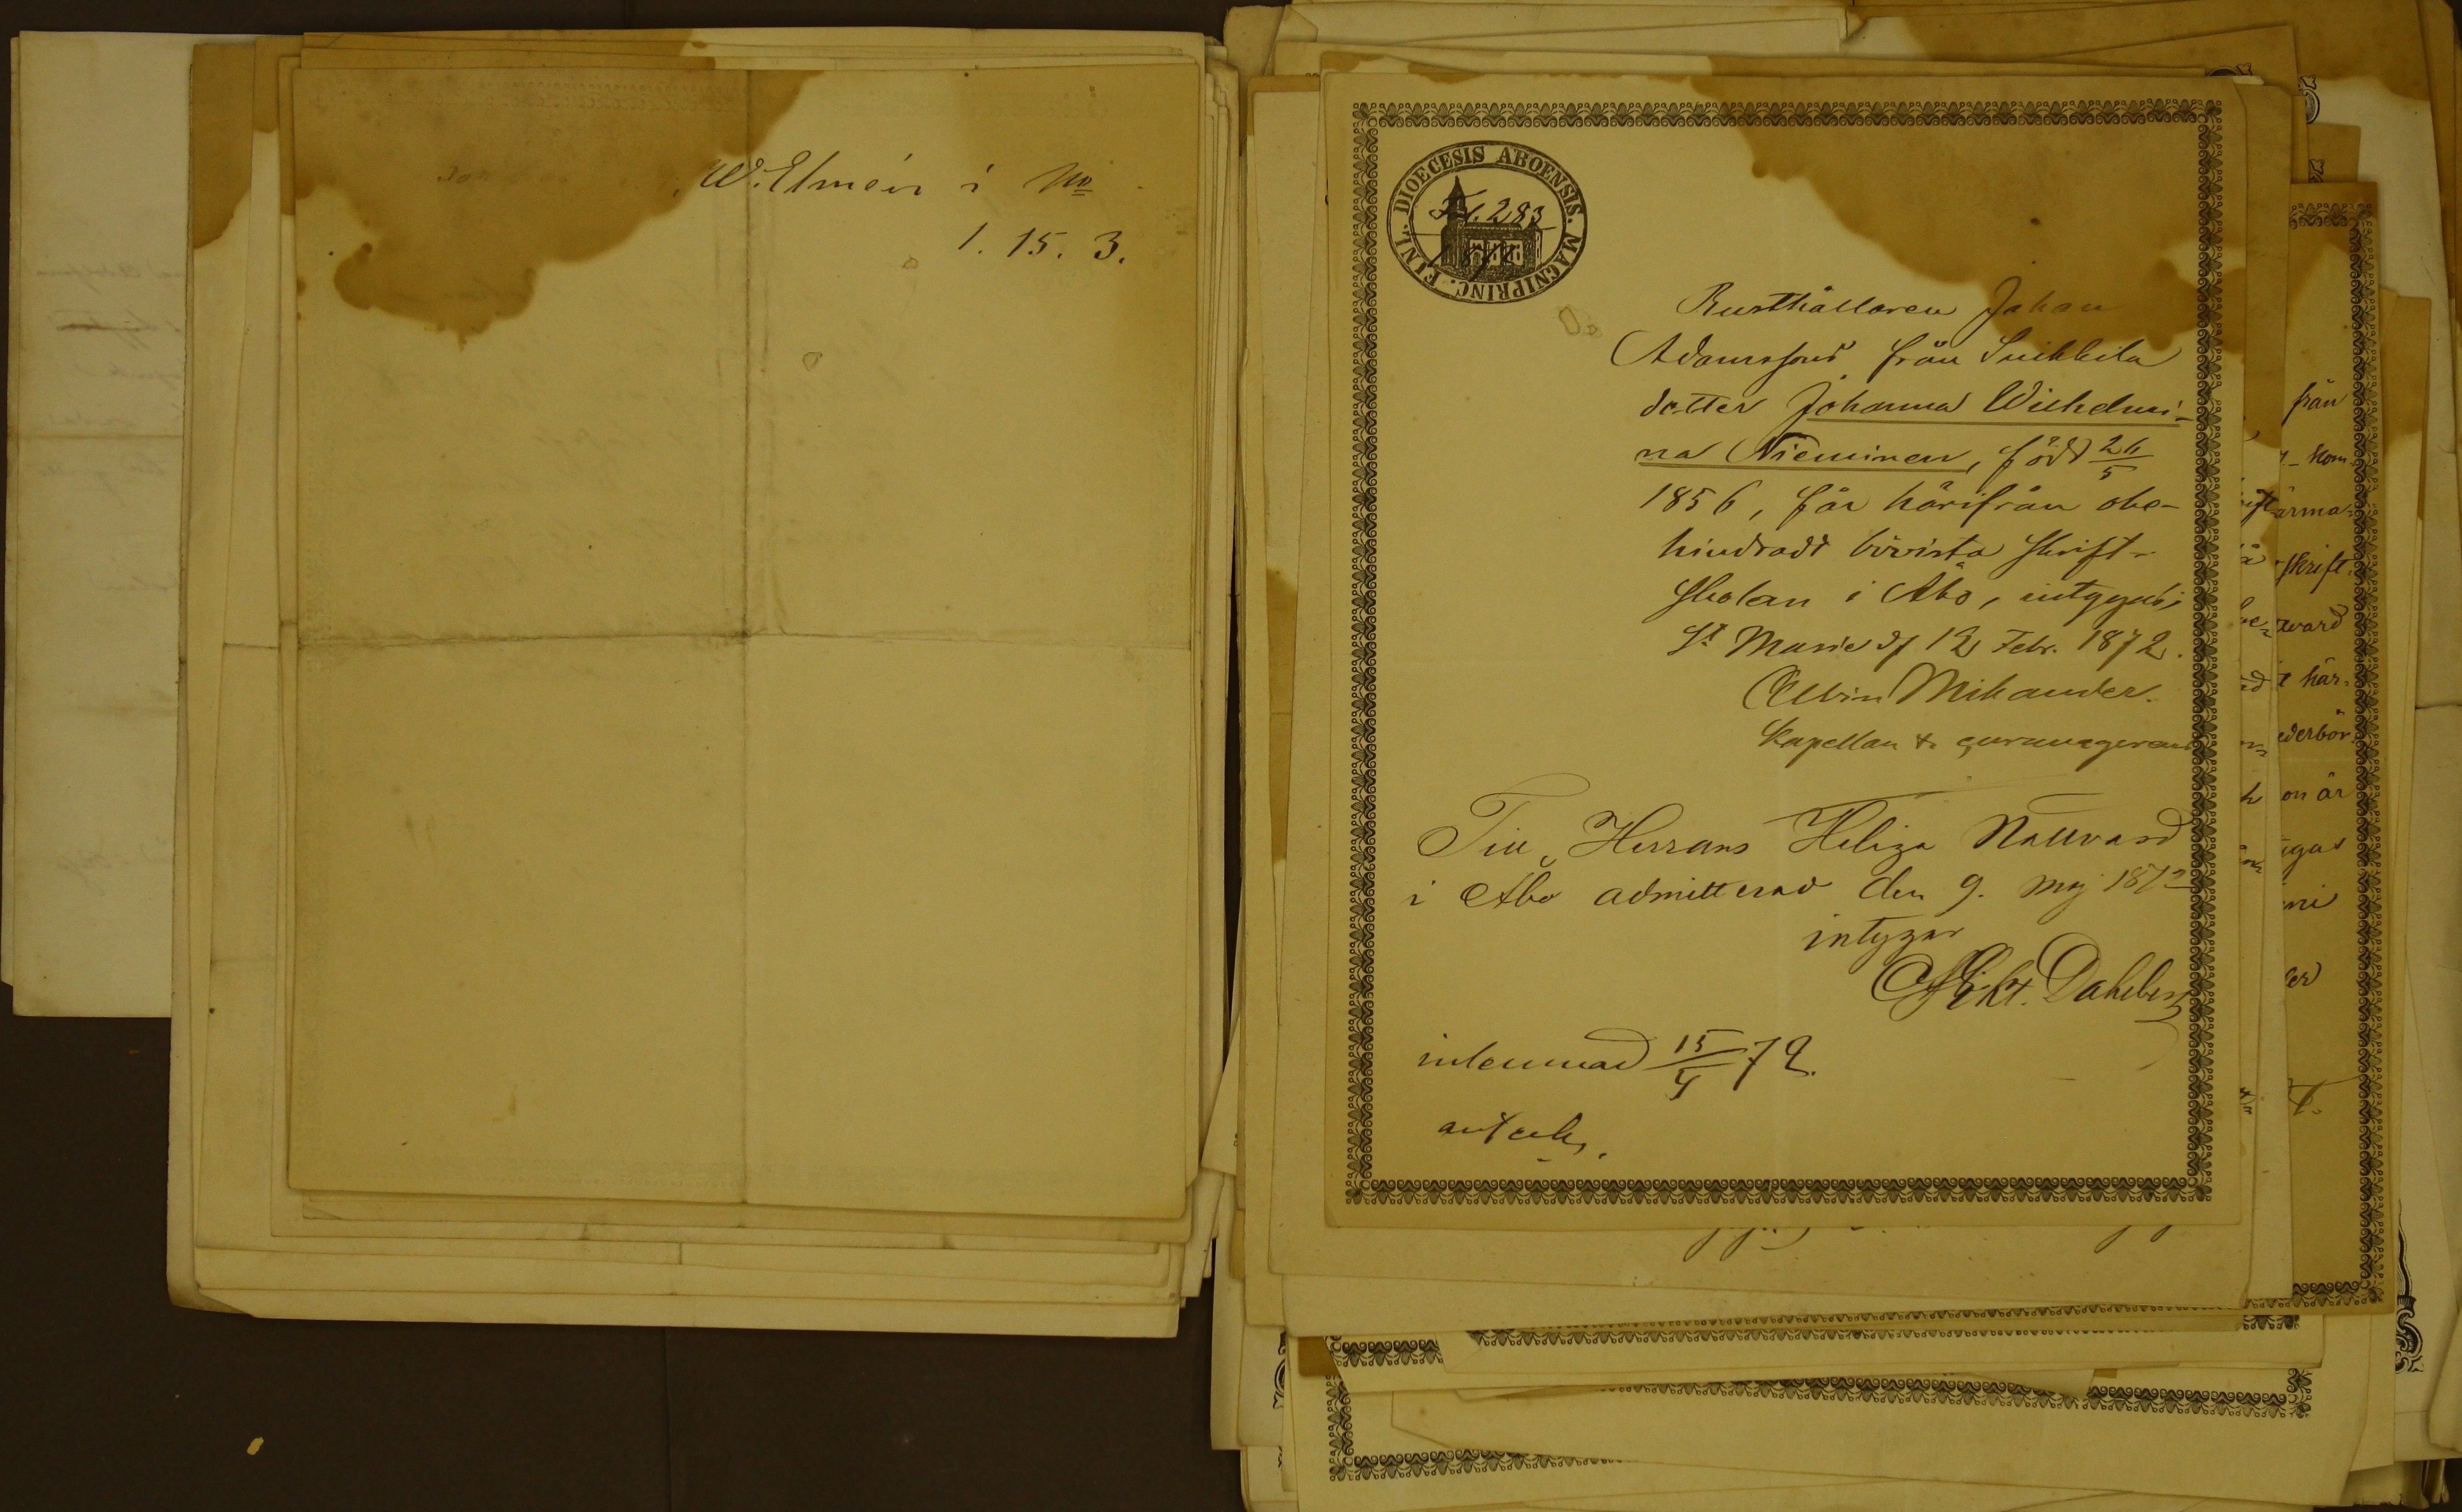 W. Elmén i No
1. 15. 3.
DIOECESIS ABOENSIS. MAGNIPRINC. FINL.
283
Rusthållaren Johan
Adamssons från Suikkila
dotter Johanna Wilhelmi-
na Nieminen, född 26/5
1856, får härifrån obe-
hindradt bivista skrift-
skolan i Åbo, intygas;
St Marie df 12 Febr. 1872.
Mikander.
Kapellan
Till Herrans Heliga Nattvard
i Åbo admitterad den 9. Maj 1872
intygar
Dahlberg
inlemnad 15/4 72.
från
kom-
arma-
skrift-
tvard
t här-
ederbör
on är